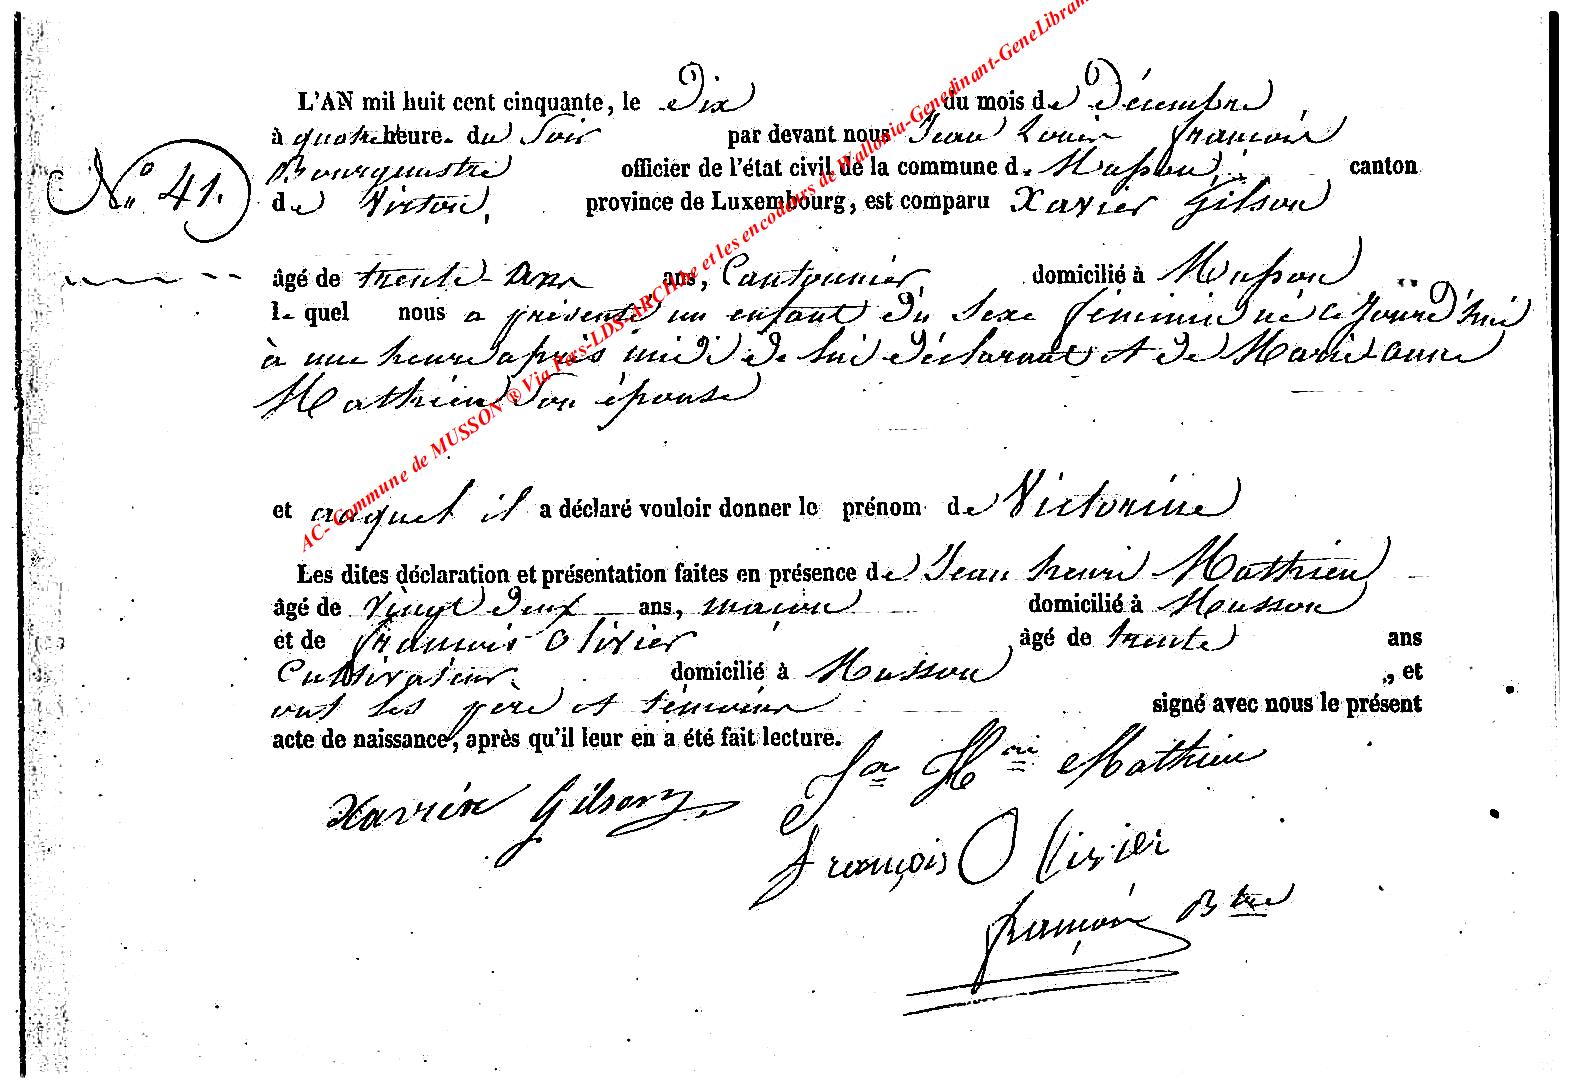 L'AN mil huit cent cinquante, le Dix du mois de Décembre
à quatre heure du Soir par devant nous Jean Louis françois
N° 41. Bourgmestre officier de l'état civil de la commune de Musson, canton
de Virton, province de Luxembourg, est comparu Xavier Gilson
âgé de trente ans ans, Cantonnier, domicilié à Musson
lequel nous a présenté un enfant du Sexe féminin né ce jourd'hui
à une heure après midi de lui déclarant et de Marie anne
Mathieu Son épouse
et auquel il a déclaré vouloir donner le prénom de Victorine
Les dites déclaration et présentation faites en présence de Jean henri Mathieu
âgé de vingt deux ans, maçon domicilié à Musson
et de françois Olivier âgé de trente ans
Cultivateur domicilié à Musson, et
ont les père et témoins signé avec nous le présent
acte de naissance, après qu'il leur en a été fait lecture.
Jn Hri Mathieu
Xavier Gilson
François Olivier
françois Btre
AC- Commune de MUSSON ® Via Fors-LDS-ARCHive et les encodeurs de Wallonia-Genedinant-GeneLibran